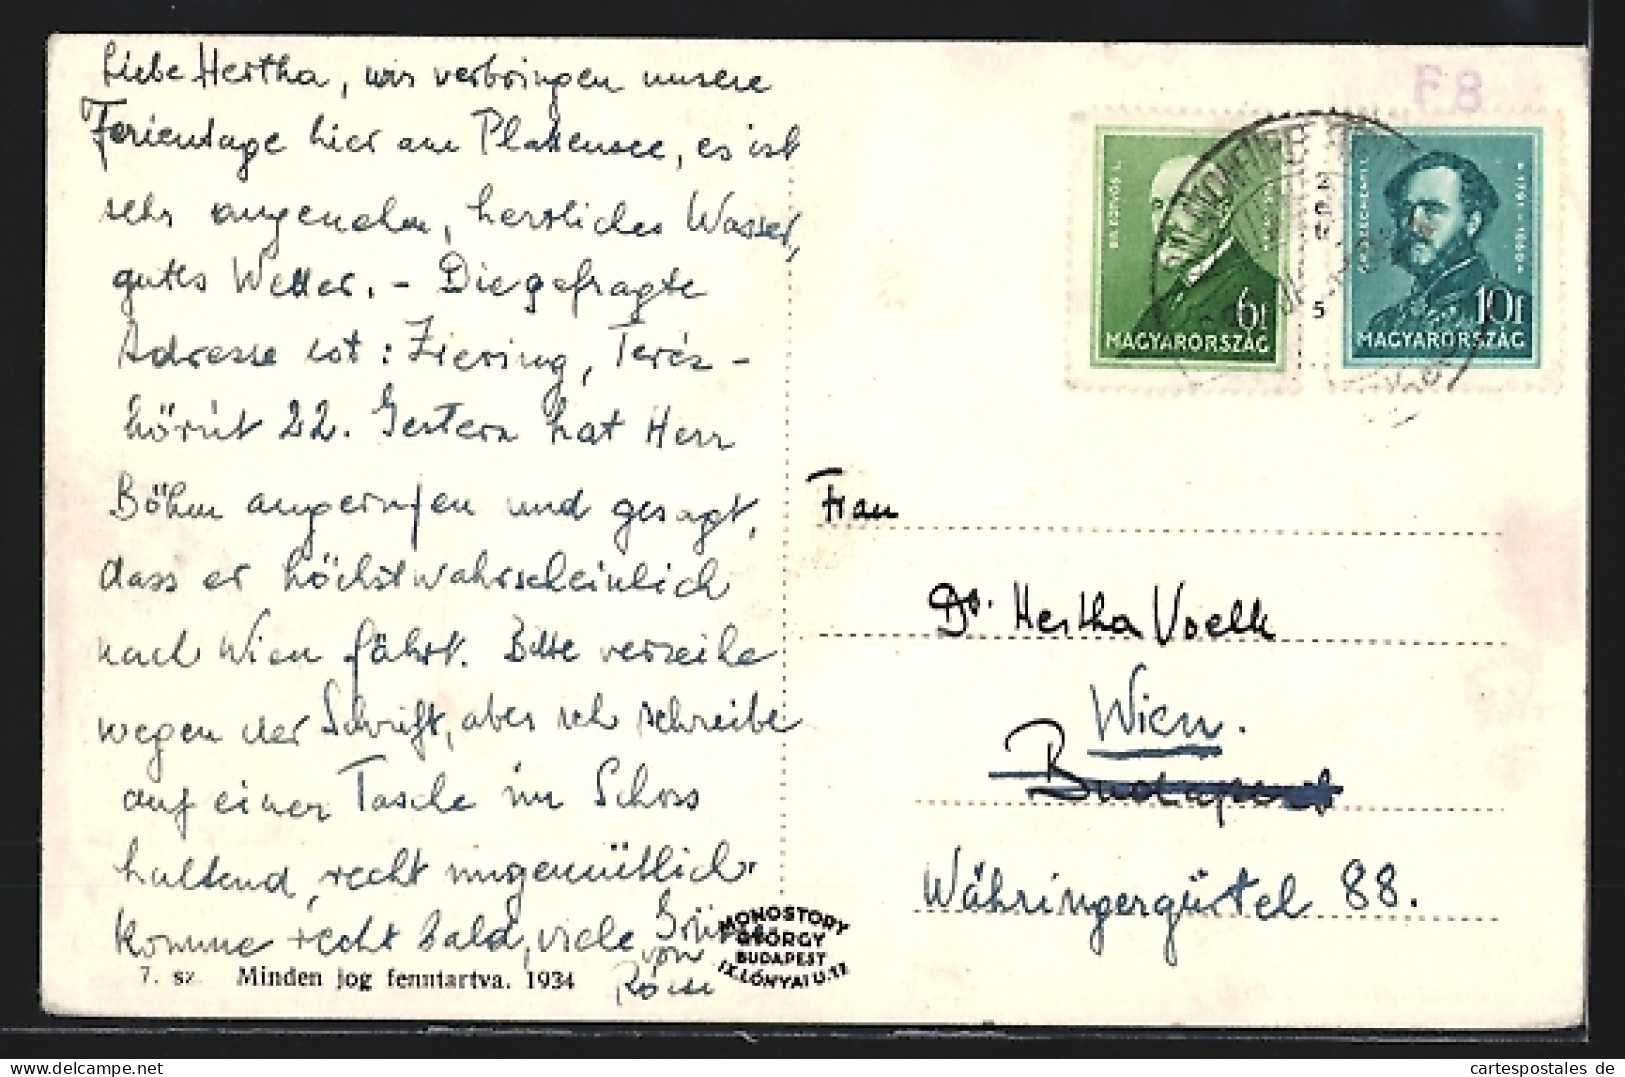 Liebe Hertha, wir verbringen unsere
Ferientage hier am Plattensee, es ist
sehr angenehm, herrliches Wasser,
gutes Wetter. - Die gefragte
Adresse ist: Ziering, Teréz-
körút 22. Gestern hat Herr
Böhm angerufen und gesagt,
dass er höchstwahrscheinlich
nach Wien fährt. Bitte verzeihe
wegen der Schrift, aber ich schreibe
auf einer Tasche im Schoss
haltend, recht ungemütlich.
Komme recht bald, viele Grüsse
von
7. sz. Minden jog fenntartva. 1934
MONOSTORY
GYÖRGY
BUDAPEST
IX. LÓNYAI U. 17
F8
B. EÖTVÖS L.
6f
MAGYARORSZÁG
GR. SZÉCHENYI I.
1791-1860
10f
MAGYARORSZÁG
5
Frau
Dr. Hertha Voelk
Wien.
Budapest
Währingergürtel 88.
cartespostales de